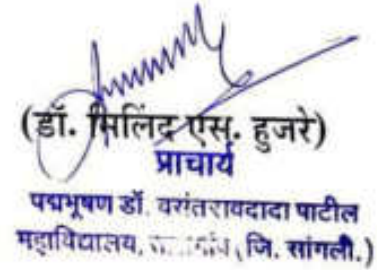 (डॉ. मिलिंद एस. हुजरे)
प्राचार्य
पद्मभूषण डॉ. वसंतरावदादा पाटील
महाविद्यालय, (जि. सांगली.)